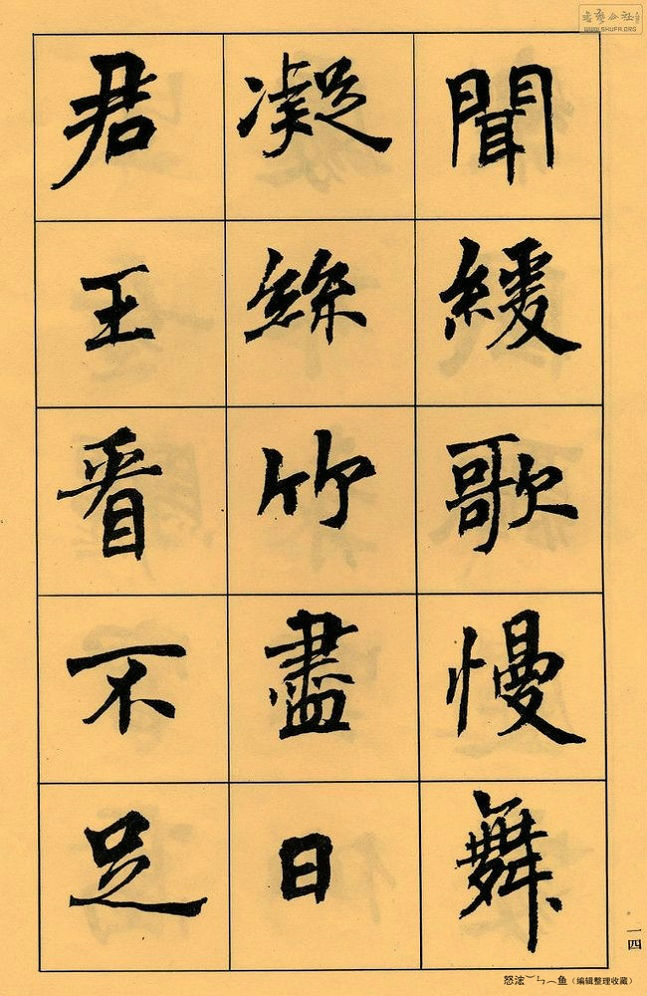 聞緩歌慢舞
凝絲竹盡日
君王看不足
一四
WWW.SHUFA.ORG
(编辑整理收藏)